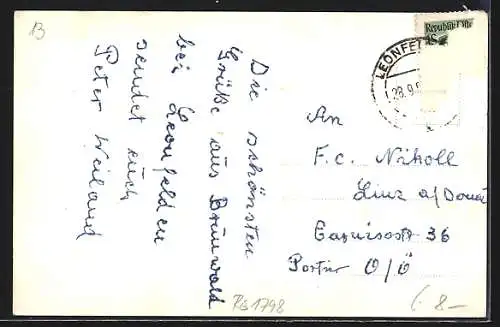 13
Die schönsten
Grüße aus Brunwald
bei Leonfelden
sendet euch
Peter Weiland
Republik Öste
1S
LEONFEL
28.9.
An
F.C. Nikoll
Linz a/Donau
36
Portier O/Ö
RB1798
8-